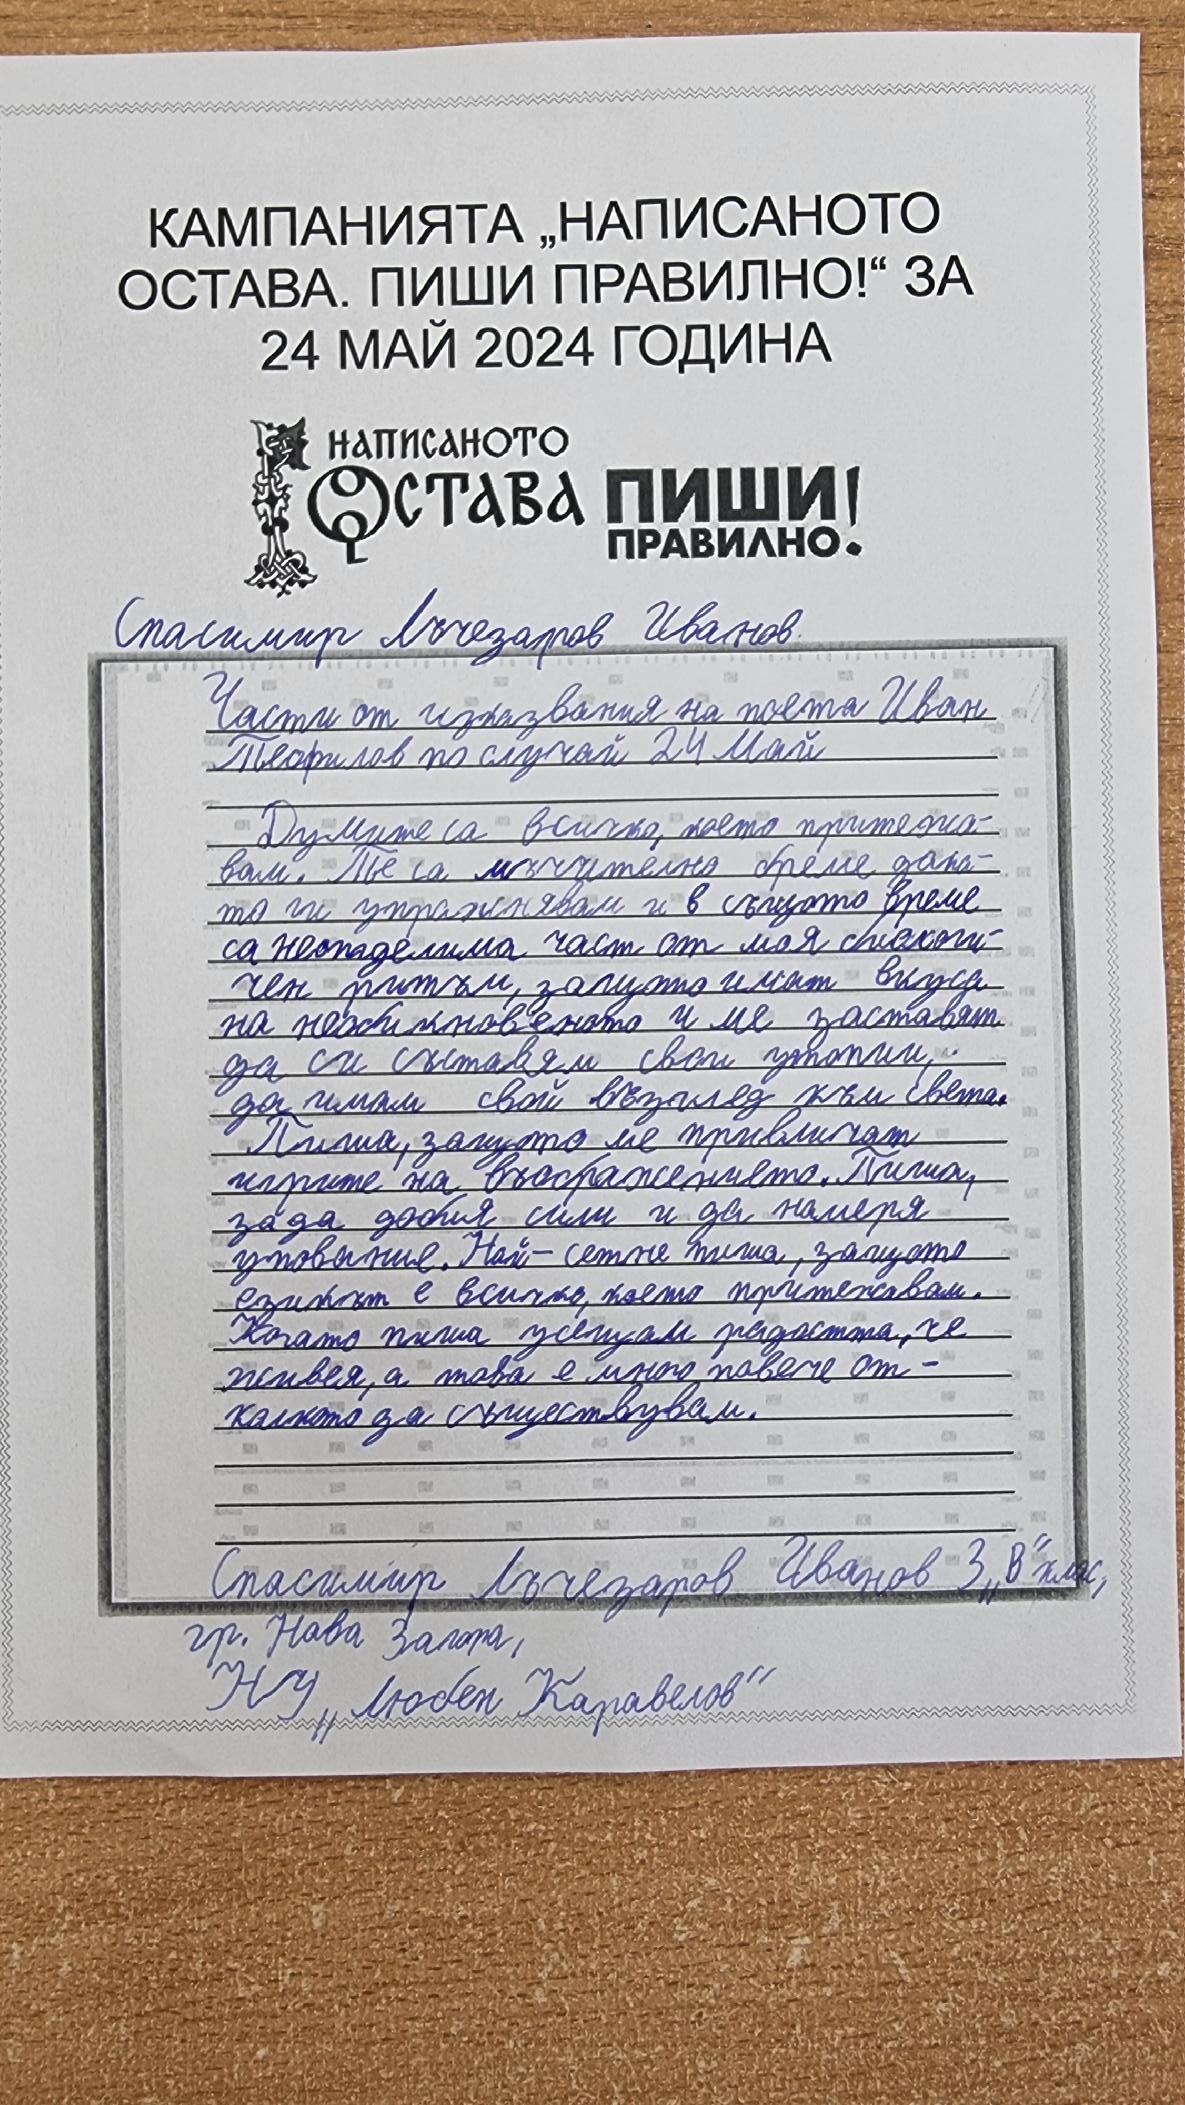 КАМПАНИЯТА „НАПИСАНОТО
ОСТАВА. ПИШИ ПРАВИЛНО!“ ЗА
24 МАЙ 2024 ГОДИНА
НАПИСАНОТО
ОСТАВА ПИШИ!
ПРАВИЛНО
Спасимир Лъчезаров Иванов.
Части от изказвания на поета Иван
Теофилов по случай 24 Май
Думите са всичко, което притежа-
вам. Те са мъчително бреме дока-
то ги упражнявам и в същото време
са неотделима част от моя биологи-
чен ритъм, защото имат вкуса
на необикновеното и ме заставят
да си съставям свои утопии,
да имам свой възглед към света.
Пиша, защото ме привличат
игрите на въображението. Пиша,
за да добия сили и да намеря
упование. Най-сетне пиша, защото
езикът е всичко, което притежавам.
Когато пиша усещам радостта, че
живея, а това е много повече от-
колкото да съществувам.
Спасимир Лъчезаров Иванов 3 „В“ клас,
гр. Нова Загора,
НУ „Любен Каравелов“